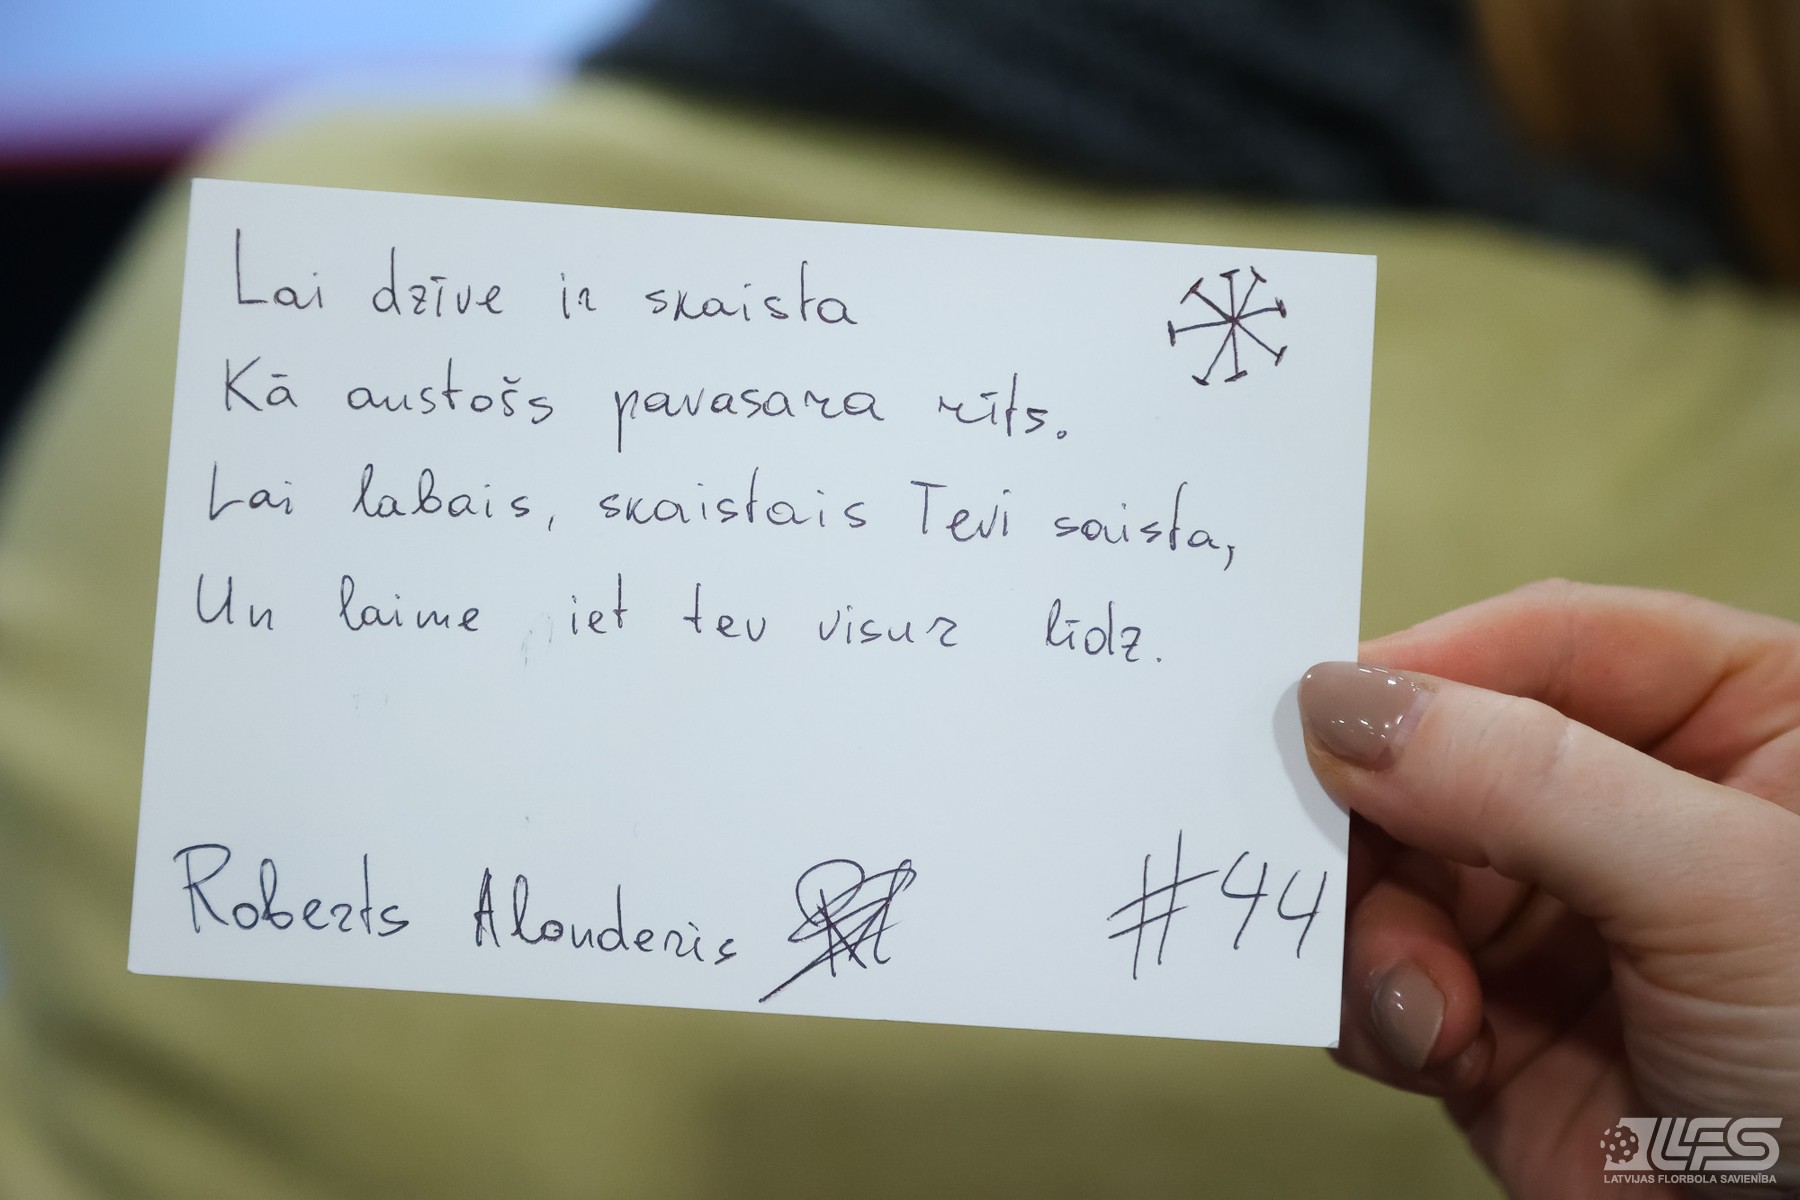 Lai dzīve ir skaista
Kā austošs pavasara rīts.
Lai labais, skaistais Tevi saista,
Un laime iet tev visur līdz.
Roberts Alonderis #44
LFS
LATVIJAS FLORBOLA SAVIENĪBA